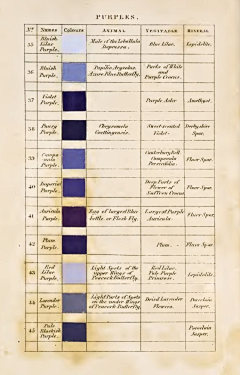 PURPLES.
No. Names Colours ANIMAL VEGETABLE MINERAL
35 Bluish Lilac Purple. Male of the Lebellula Depressa. Blue Lilac. Lepidolite.
36 Bluish Purple. Papilio Argeolus. Azure Blue Butterfly. Parts of White and Purple Crocus.
37 Violet Purple. Purple Aster. Amethyst.
38 Pansy Purple. Chrysomela Goettingensis. Sweet-scented Violet. Derbyshire Spar.
39 Campanula Purple. Canterbury Bell. Campanula Persicifolia. Fluor Spar.
40 Imperial Purple. Deep Parts of Flower of Saffron Crocus. Fluor Spar.
41 Auricula Purple. Egg of largest Blue bottle, or Flesh Fly. Largest Purple Auricula. Fluor Spar.
42 Plum Purple. Plum. Fluor Spar.
43 Red Lilac Purple. Light Spots of the upper Wings of Peacock Butterfly. Red Lilac, Pale Purple Primrose. Lepidolite.
44 Lavender Purple. Light Parts of Spots on the under Wings of Peacock Butterfly. Dried Lavender Flowers. Porcelain Jasper.
45 Pale Blackish Purple. Porcelain Jasper.